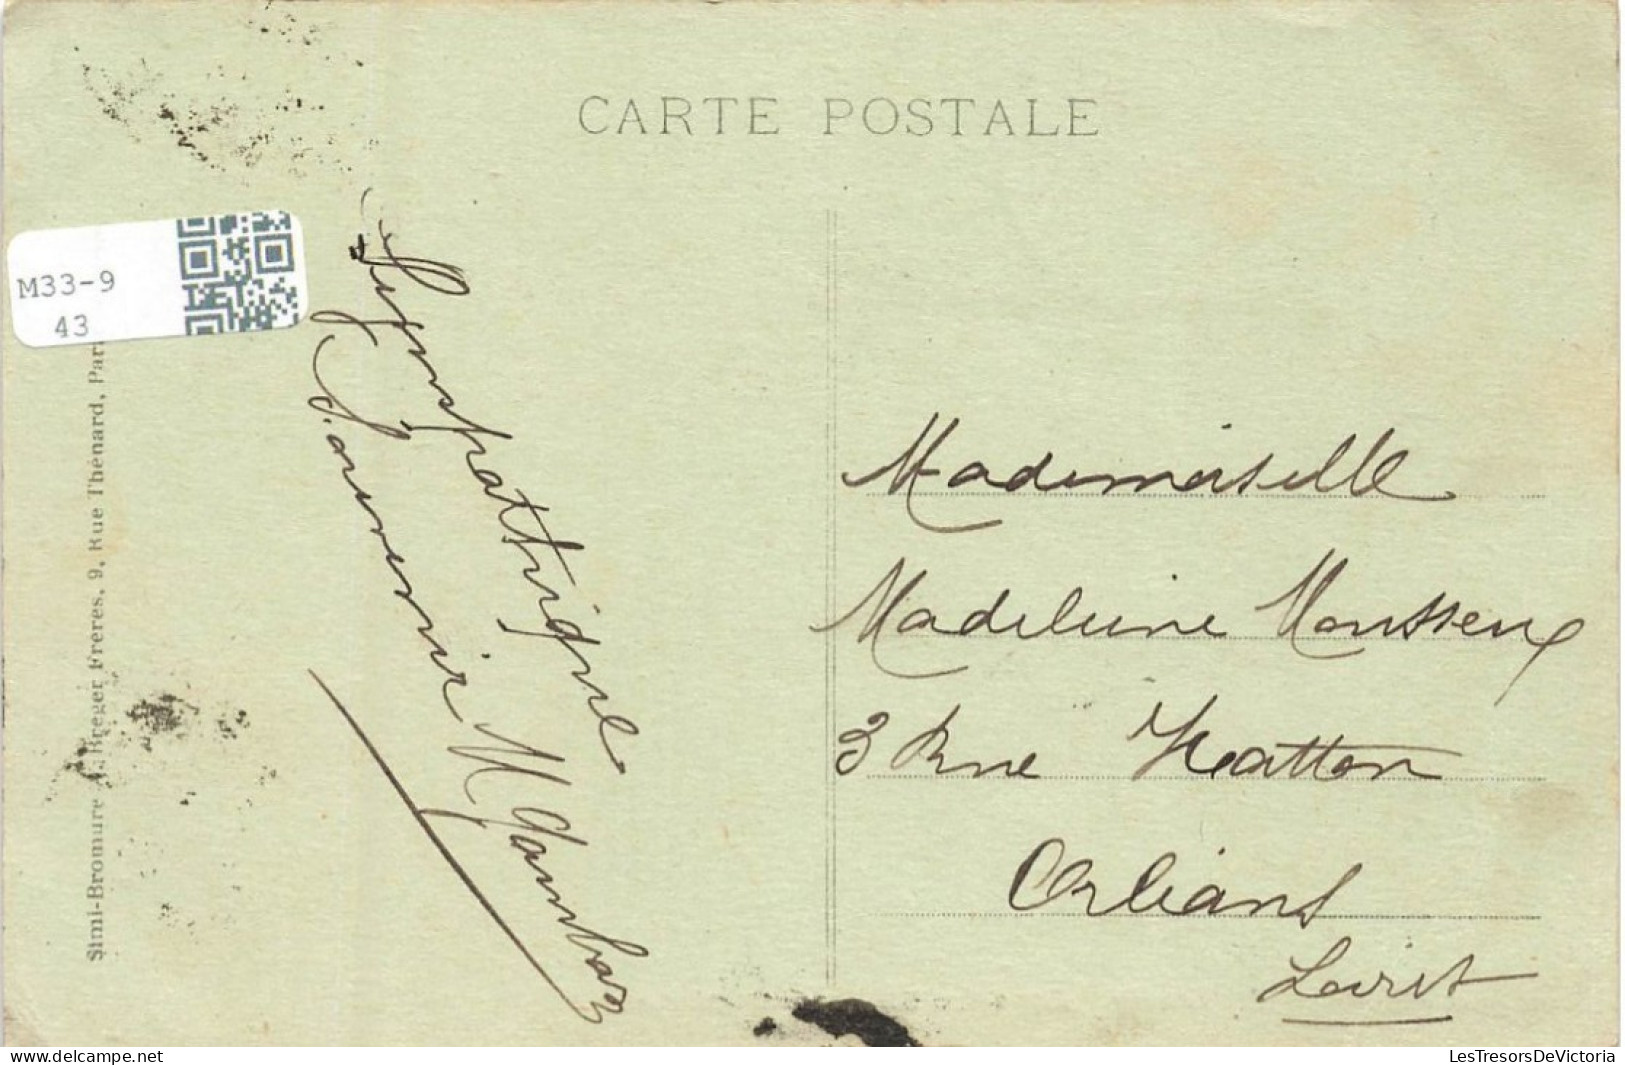 CARTE POSTALE
M33-9
43
Simi-Bromure A. Breger Frères, 9, Rue Thénard, Par
Sympathique
Souvenir M
Mademoiselle
Madeleine Mousseux
3 Rue
Orléans
Loiret
delcampe.net
LesTresorsDeVictoria